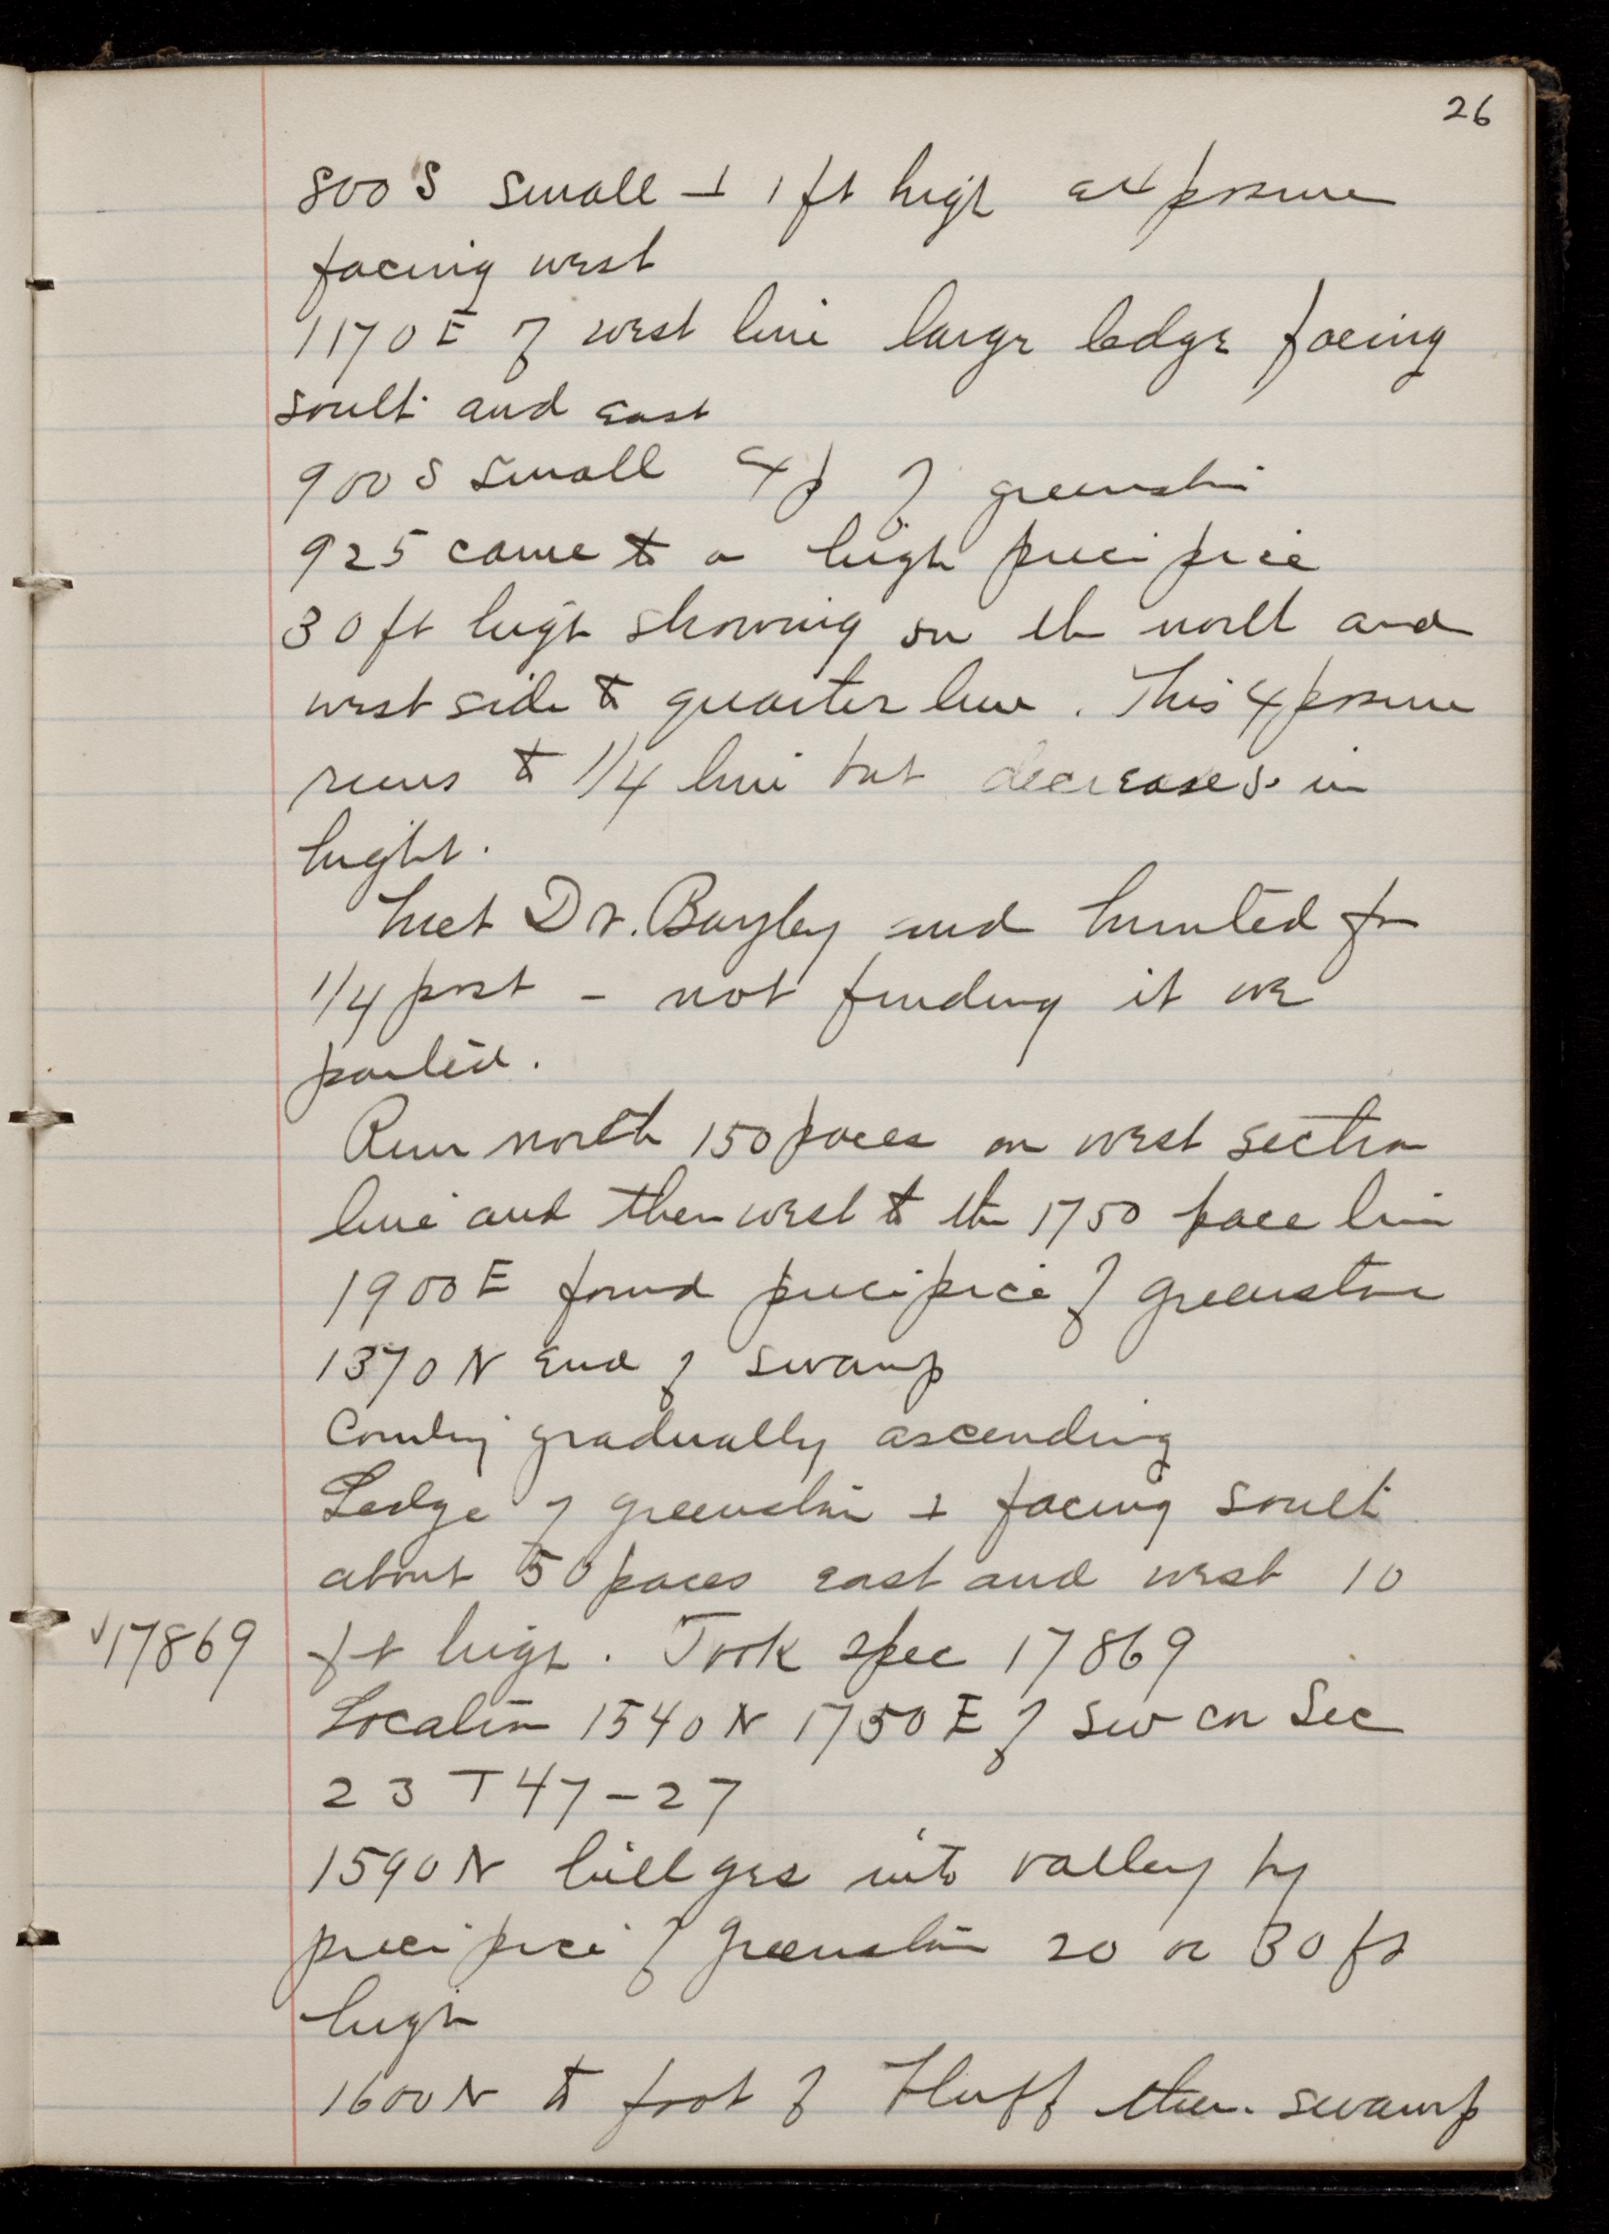 26
800 S small ⊥ 1 ft high exposure
facing west
1170 E of west line large ledge facing
south and east
900 S small exp of greenstone
925 came to a high precipice
30 ft high showing on the north and
west side to quarter line. This exposure
runs to 1/4 line but decreases in
hight.
Met Dr. Bayley and hunted for
1/4 post - not finding it we
parted.
Run north 150 paces on west section
line and then west to the 1750 pace line
1900 E found precipice of greenstone
1370 N end of swamp
Country gradually ascending
Ledge of greenstone ⊥ facing south
about 50 paces east and west 10
√17869 ft high. Took spec 17869
Location 1540 N 1750 E of SW cor Sec
23 T 47-27
1590 N hill goes into valley by
precipice of greenstone 20 or 30 ft
high
1600 N to foot of bluff then swamp